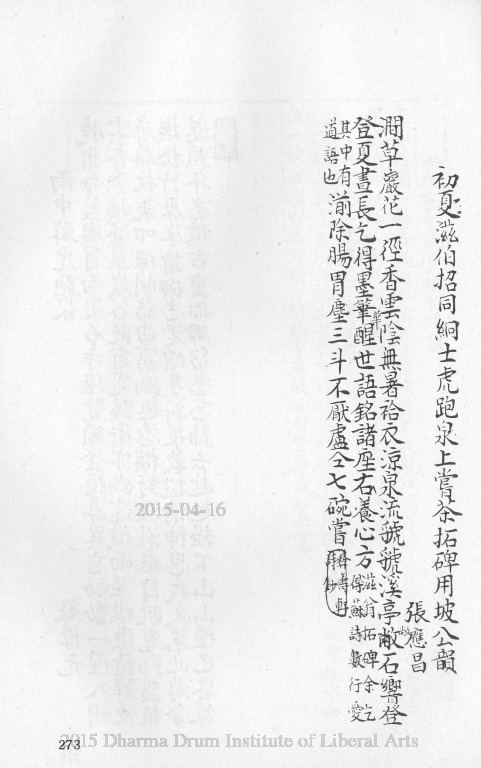 初夏滋伯招同絅士虎跑泉上嘗茶拓碑用坡公韻
張應昌
澗草巖花一徑香雲陰無暑袷衣涼泉流虢虢溪亭敞石響登
登夏晝長乞得墨華醒世語銘諸座右養心方滋翁拓碑余乞得蘇詩數行愛
其中有道語也湔除腸胃塵三斗不厭盧仝七碗嘗
2015-04-16
273
2015 Dharma Drum Institute of Liberal Arts